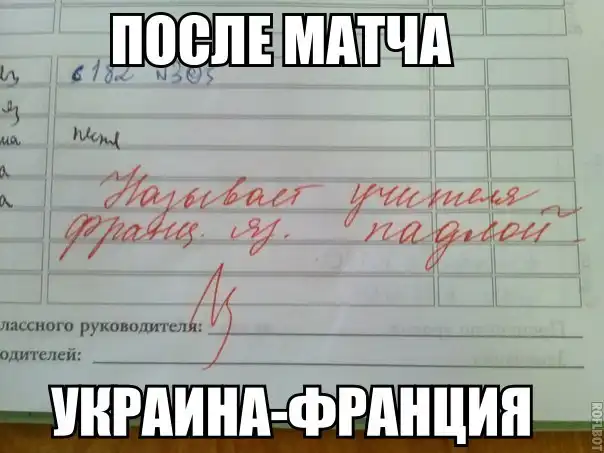 ПОСЛЕ МАТЧА
с 182 N303
яз
ма песня
а
а Называет учителя
франц. яз. падлой
лассного руководителя:
одителей:
УКРАИНА-ФРАНЦИЯ
ROFLBOT